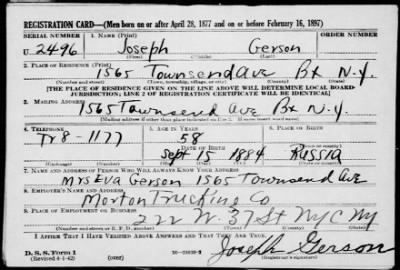 REGISTRATION CARD—(Men born on or after April 28, 1877 and on or before February 16, 1897)
SERIAL NUMBER 1. NAME (Print) ORDER NUMBER
U. 2496 Joseph Gerson
(First) (Middle) (Last)
2. PLACE OF RESIDENCE (Print)
1565 Townsend Ave Bx N.Y.
(Number and street) (Town, township, village, or city) (County) (State)
[THE PLACE OF RESIDENCE GIVEN ON THE LINE ABOVE WILL DETERMINE LOCAL BOARD
JURISDICTION; LINE 2 OF REGISTRATION CERTIFICATE WILL BE IDENTICAL]
3. MAILING ADDRESS
1565 Townsend Ave Bx N.Y.
[Mailing address if other than place indicated on line 2. If same insert word same]
4. TELEPHONE 5. AGE IN YEARS 6. PLACE OF BIRTH
58
Tr 8-1177 DATE OF BIRTH
Sept 15 1884 Russia
(Exchange) (Number) (Mo.) (Day) (Yr.) (State or country)
7. NAME AND ADDRESS OF PERSON WHO WILL ALWAYS KNOW YOUR ADDRESS
Mrs Eva Gerson 1565 Townsend Ave
8. EMPLOYER'S NAME AND ADDRESS
Morton Trucking Co
9. PLACE OF EMPLOYMENT OR BUSINESS
222 W. 37 St NYC NY
(Number and street or R. F. D. number) (Town) (County) (State)
I AFFIRM THAT I HAVE VERIFIED ABOVE ANSWERS AND THAT THEY ARE TRUE.
D. S. S. Form 1
(Revised 4-1-42) (over) Joseph Gerson
(Registrant's signature)